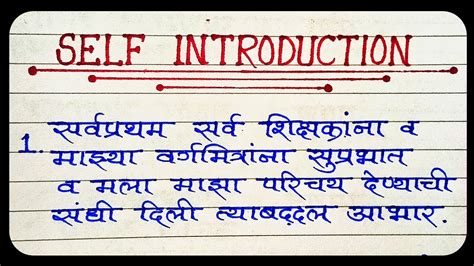 SELF INTRODUCTION
1. सर्वप्रथम सर्व शिक्षकांना व
माझ्या वर्गमित्रांना सुप्रभात
व मला माझा परिचय देण्याची
संधी दिली त्याबद्दल आभार.